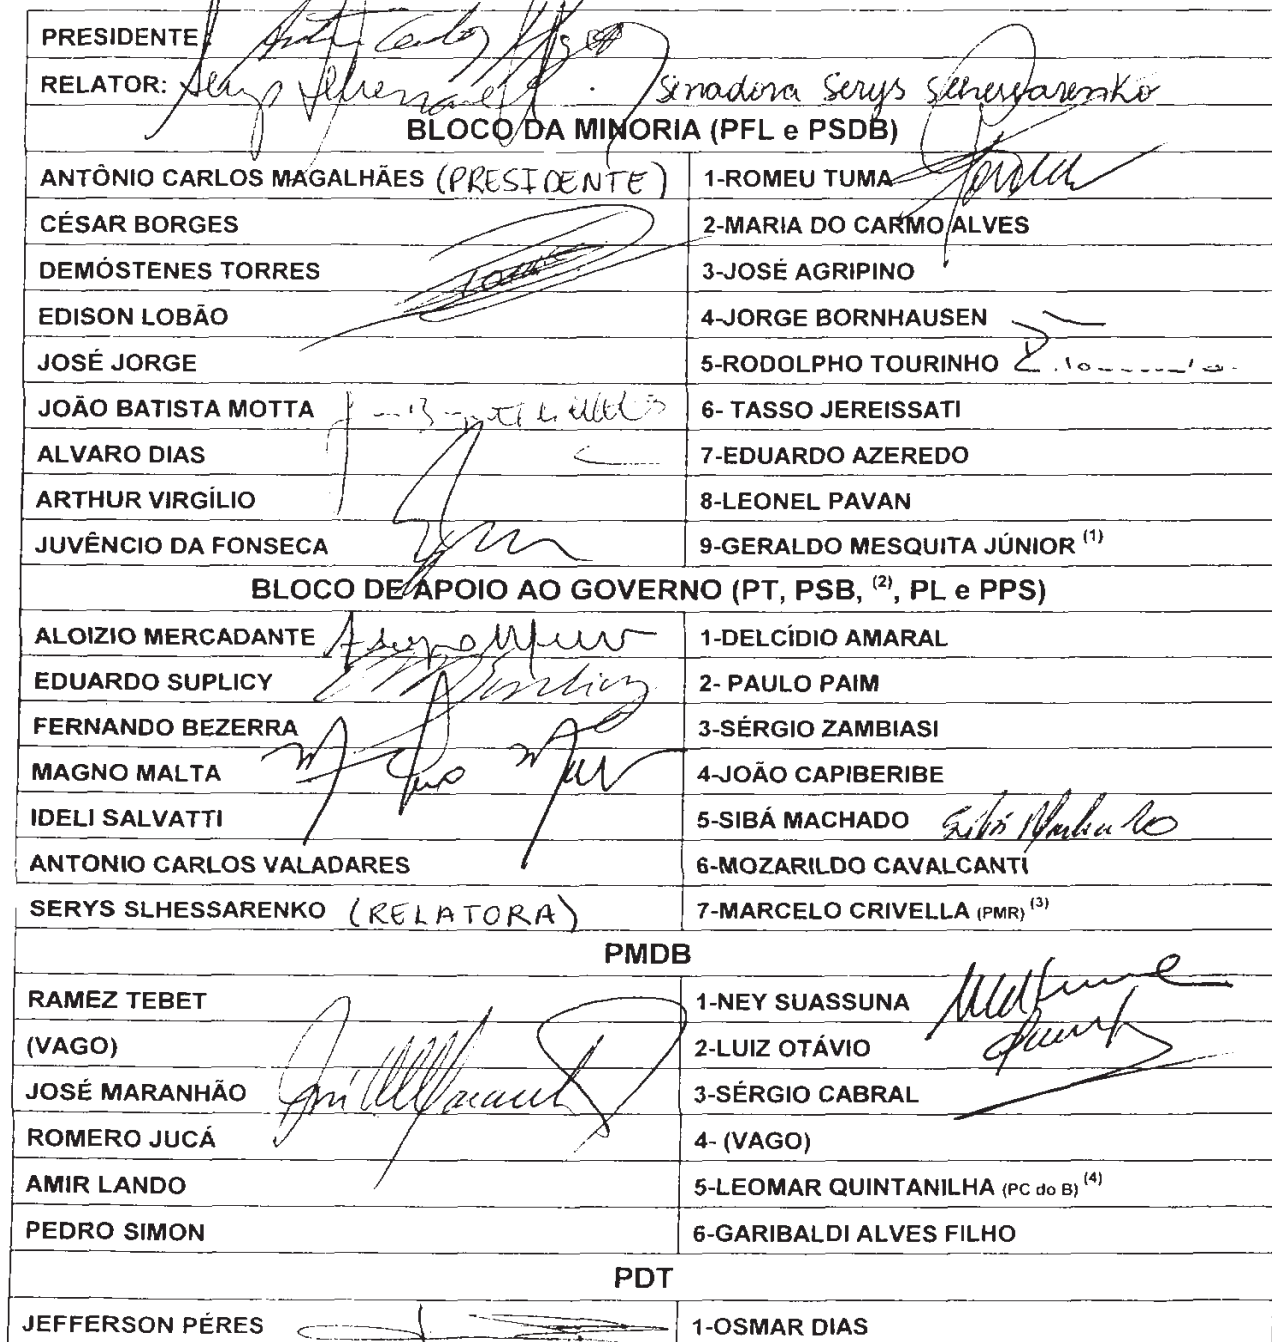 PRESIDENTE: Antonio Carlos Magalhães
RELATOR: Serys Slhessarenko . Senadora Serys Slhessarenko
BLOCO DA MINORIA (PFL e PSDB)
ANTÔNIO CARLOS MAGALHÃES (PRESIDENTE) 1-ROMEU TUMA
CÉSAR BORGES 2-MARIA DO CARMO ALVES
DEMÓSTENES TORRES 3-JOSÉ AGRIPINO
EDISON LOBÃO 4-JORGE BORNHAUSEN
JOSÉ JORGE 5-RODOLPHO TOURINHO
JOÃO BATISTA MOTTA 6- TASSO JEREISSATI
ALVARO DIAS 7-EDUARDO AZEREDO
ARTHUR VIRGÍLIO 8-LEONEL PAVAN
JUVÊNCIO DA FONSECA 9-GERALDO MESQUITA JÚNIOR (1)
BLOCO DE APOIO AO GOVERNO (PT, PSB, (2), PL e PPS)
ALOIZIO MERCADANTE 1-DELCÍDIO AMARAL
EDUARDO SUPLICY Suplicy 2- PAULO PAIM
FERNANDO BEZERRA 3-SÉRGIO ZAMBIASI
MAGNO MALTA 4-JOÃO CAPIBERIBE
IDELI SALVATTI 5-SIBÁ MACHADO Sibá Machado
ANTONIO CARLOS VALADARES 6-MOZARILDO CAVALCANTI
SERYS SLHESSARENKO (RELATORA) 7-MARCELO CRIVELLA (PMR) (3)
PMDB
RAMEZ TEBET 1-NEY SUASSUNA
(VAGO) 2-LUIZ OTÁVIO
JOSÉ MARANHÃO 3-SÉRGIO CABRAL
ROMERO JUCÁ 4- (VAGO)
AMIR LANDO 5-LEOMAR QUINTANILHA (PC do B) (4)
PEDRO SIMON 6-GARIBALDI ALVES FILHO
PDT
JEFFERSON PÉRES 1-OSMAR DIAS